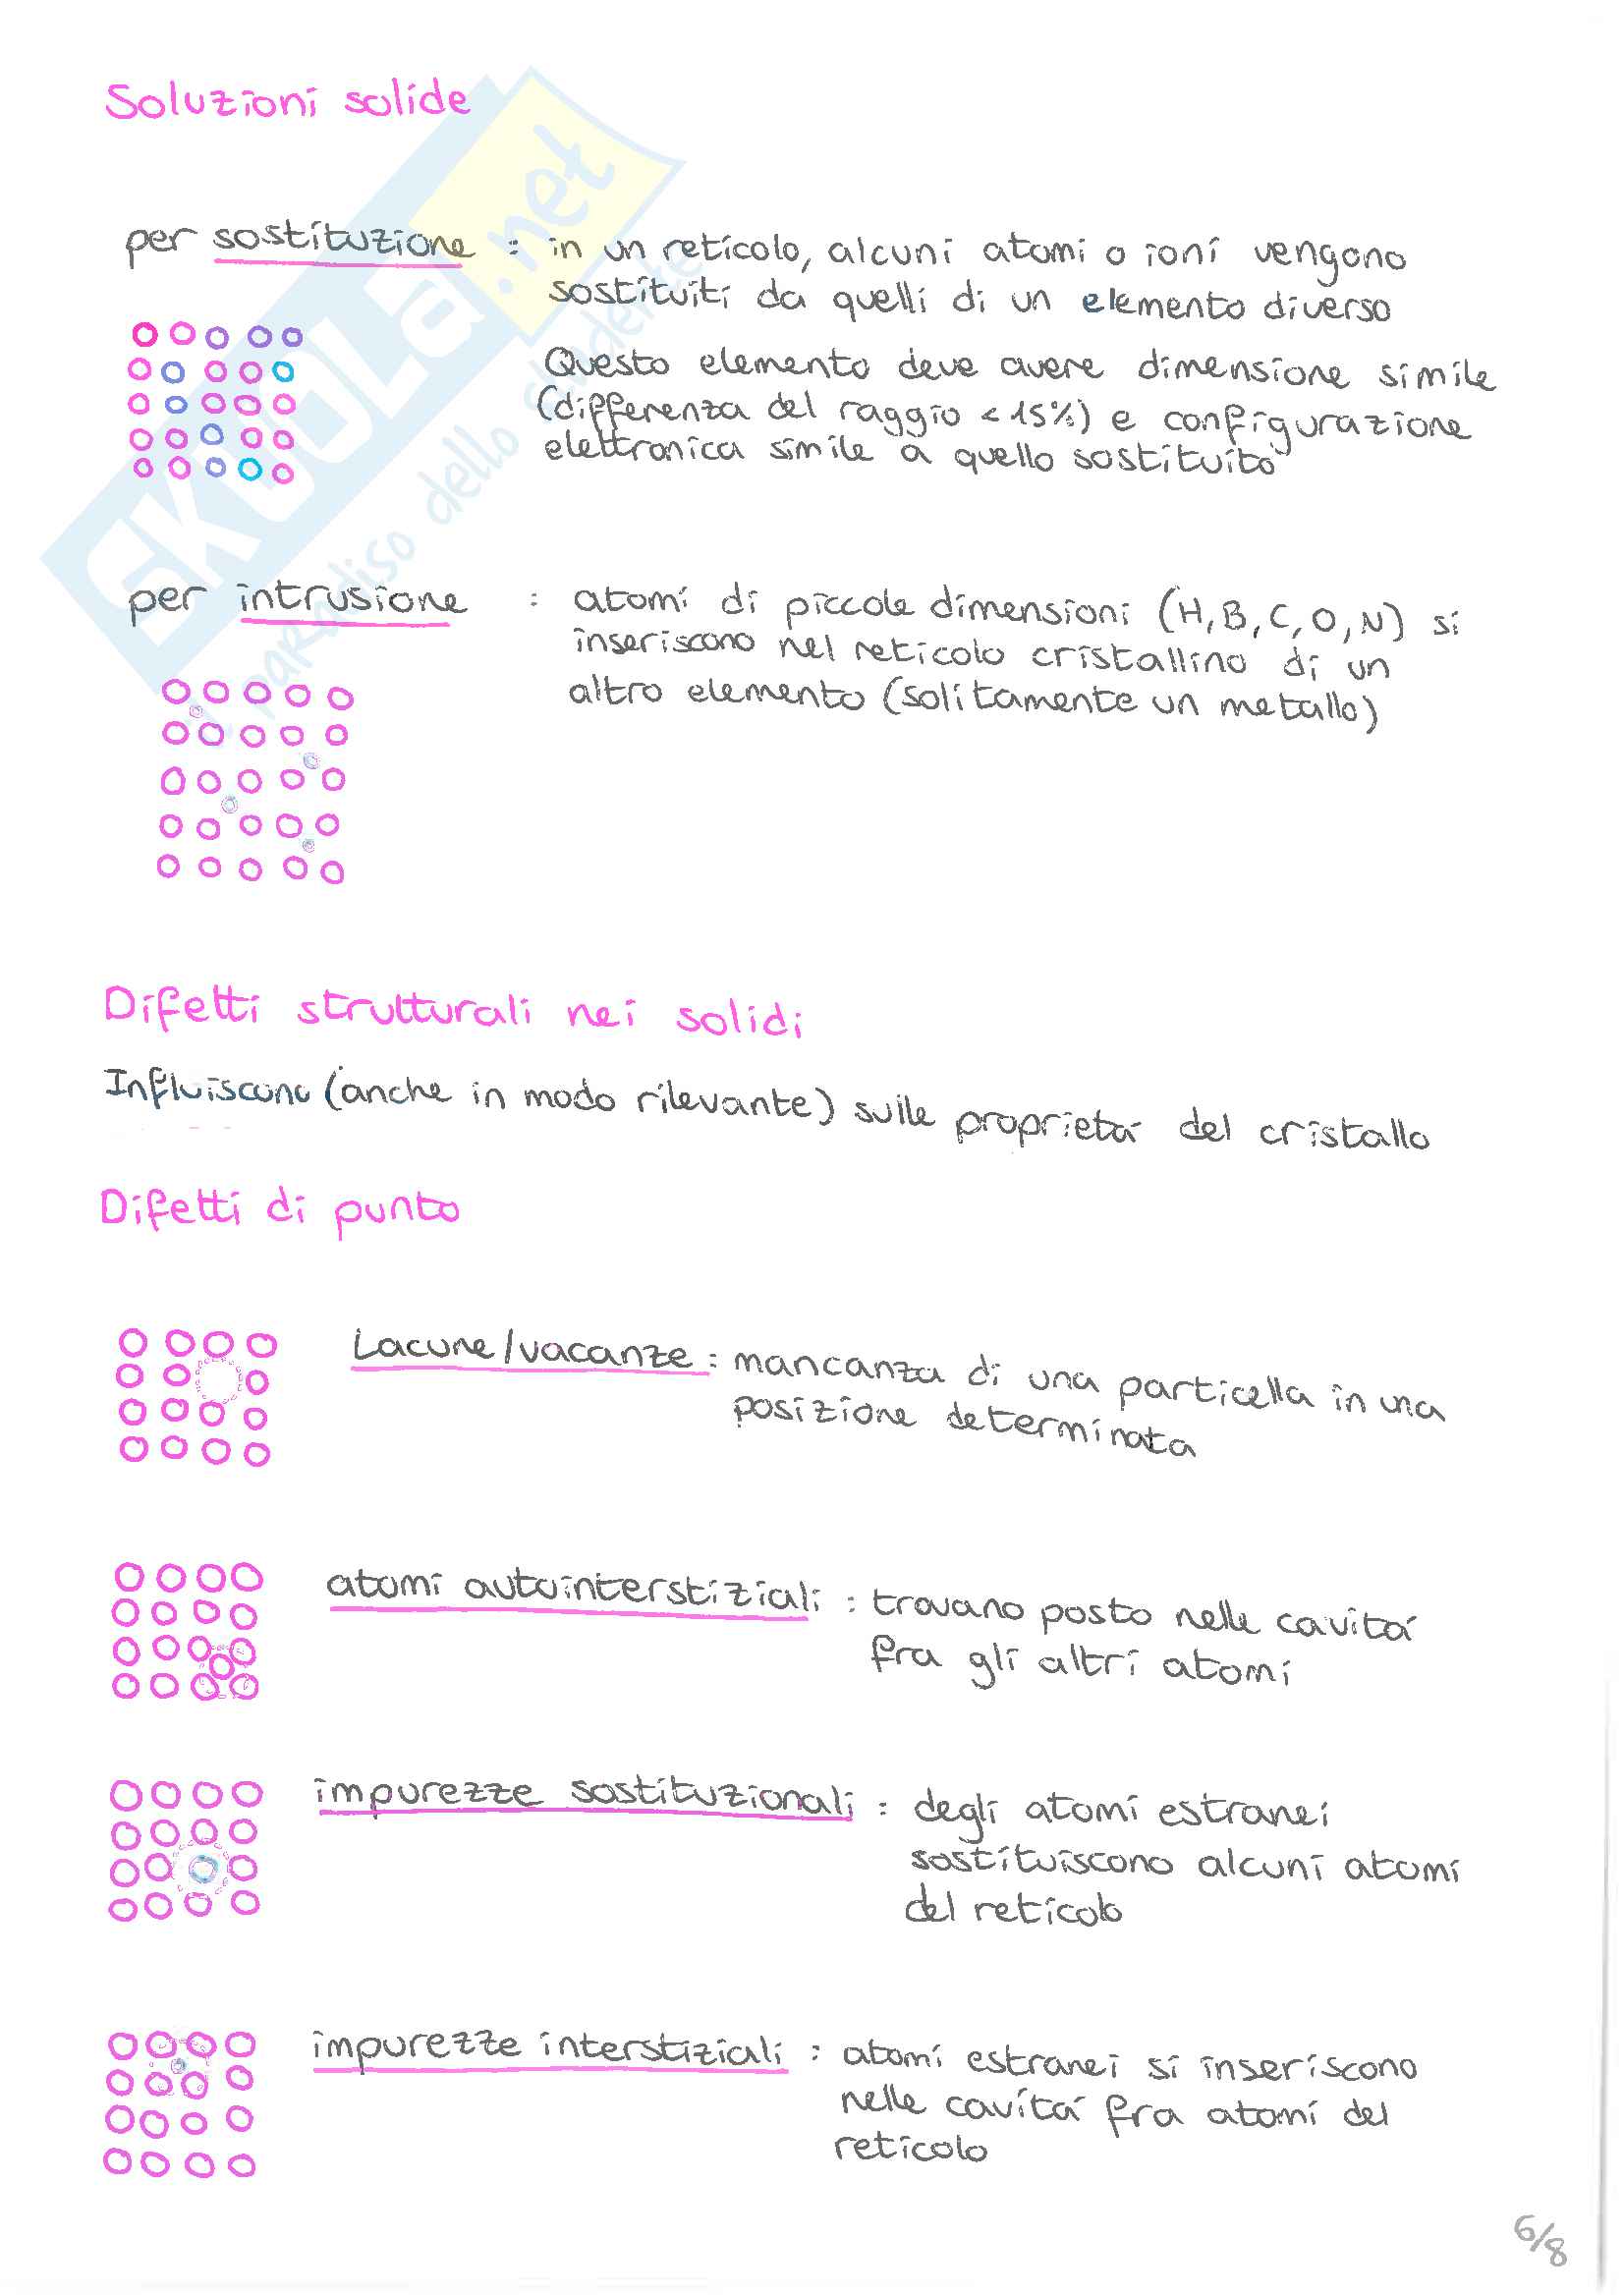 Soluzioni solide
per sostituzione : in un reticolo, alcuni atomi o ioni vengono
sostituiti da quelli di un elemento diverso
Questo elemento deve avere dimensione simile
(differenza del raggio < 15%) e configurazione
elettronica simile a quello sostituito
per intrusione : atomi di piccole dimensioni (H, B, C, O, N) si
inseriscono nel reticolo cristallino di un
altro elemento (solitamente un metallo)
Difetti strutturali nei solidi
Influiscono (anche in modo rilevante) sulle proprietá del cristallo
Difetti di punto
Lacune/vacanze : mancanza di una particella in una
posizione determinata
atomi autointerstiziali : trovano posto nelle cavitá
fra gli altri atomi
impurezze sostituzionali : degli atomi estranei
sostituiscono alcuni atomi
del reticolo
impurezze interstiziali : atomi estranei si inseriscono
nelle cavitá fra atomi del
reticolo
6/8
SKUOLA.net
il paradiso dello studente